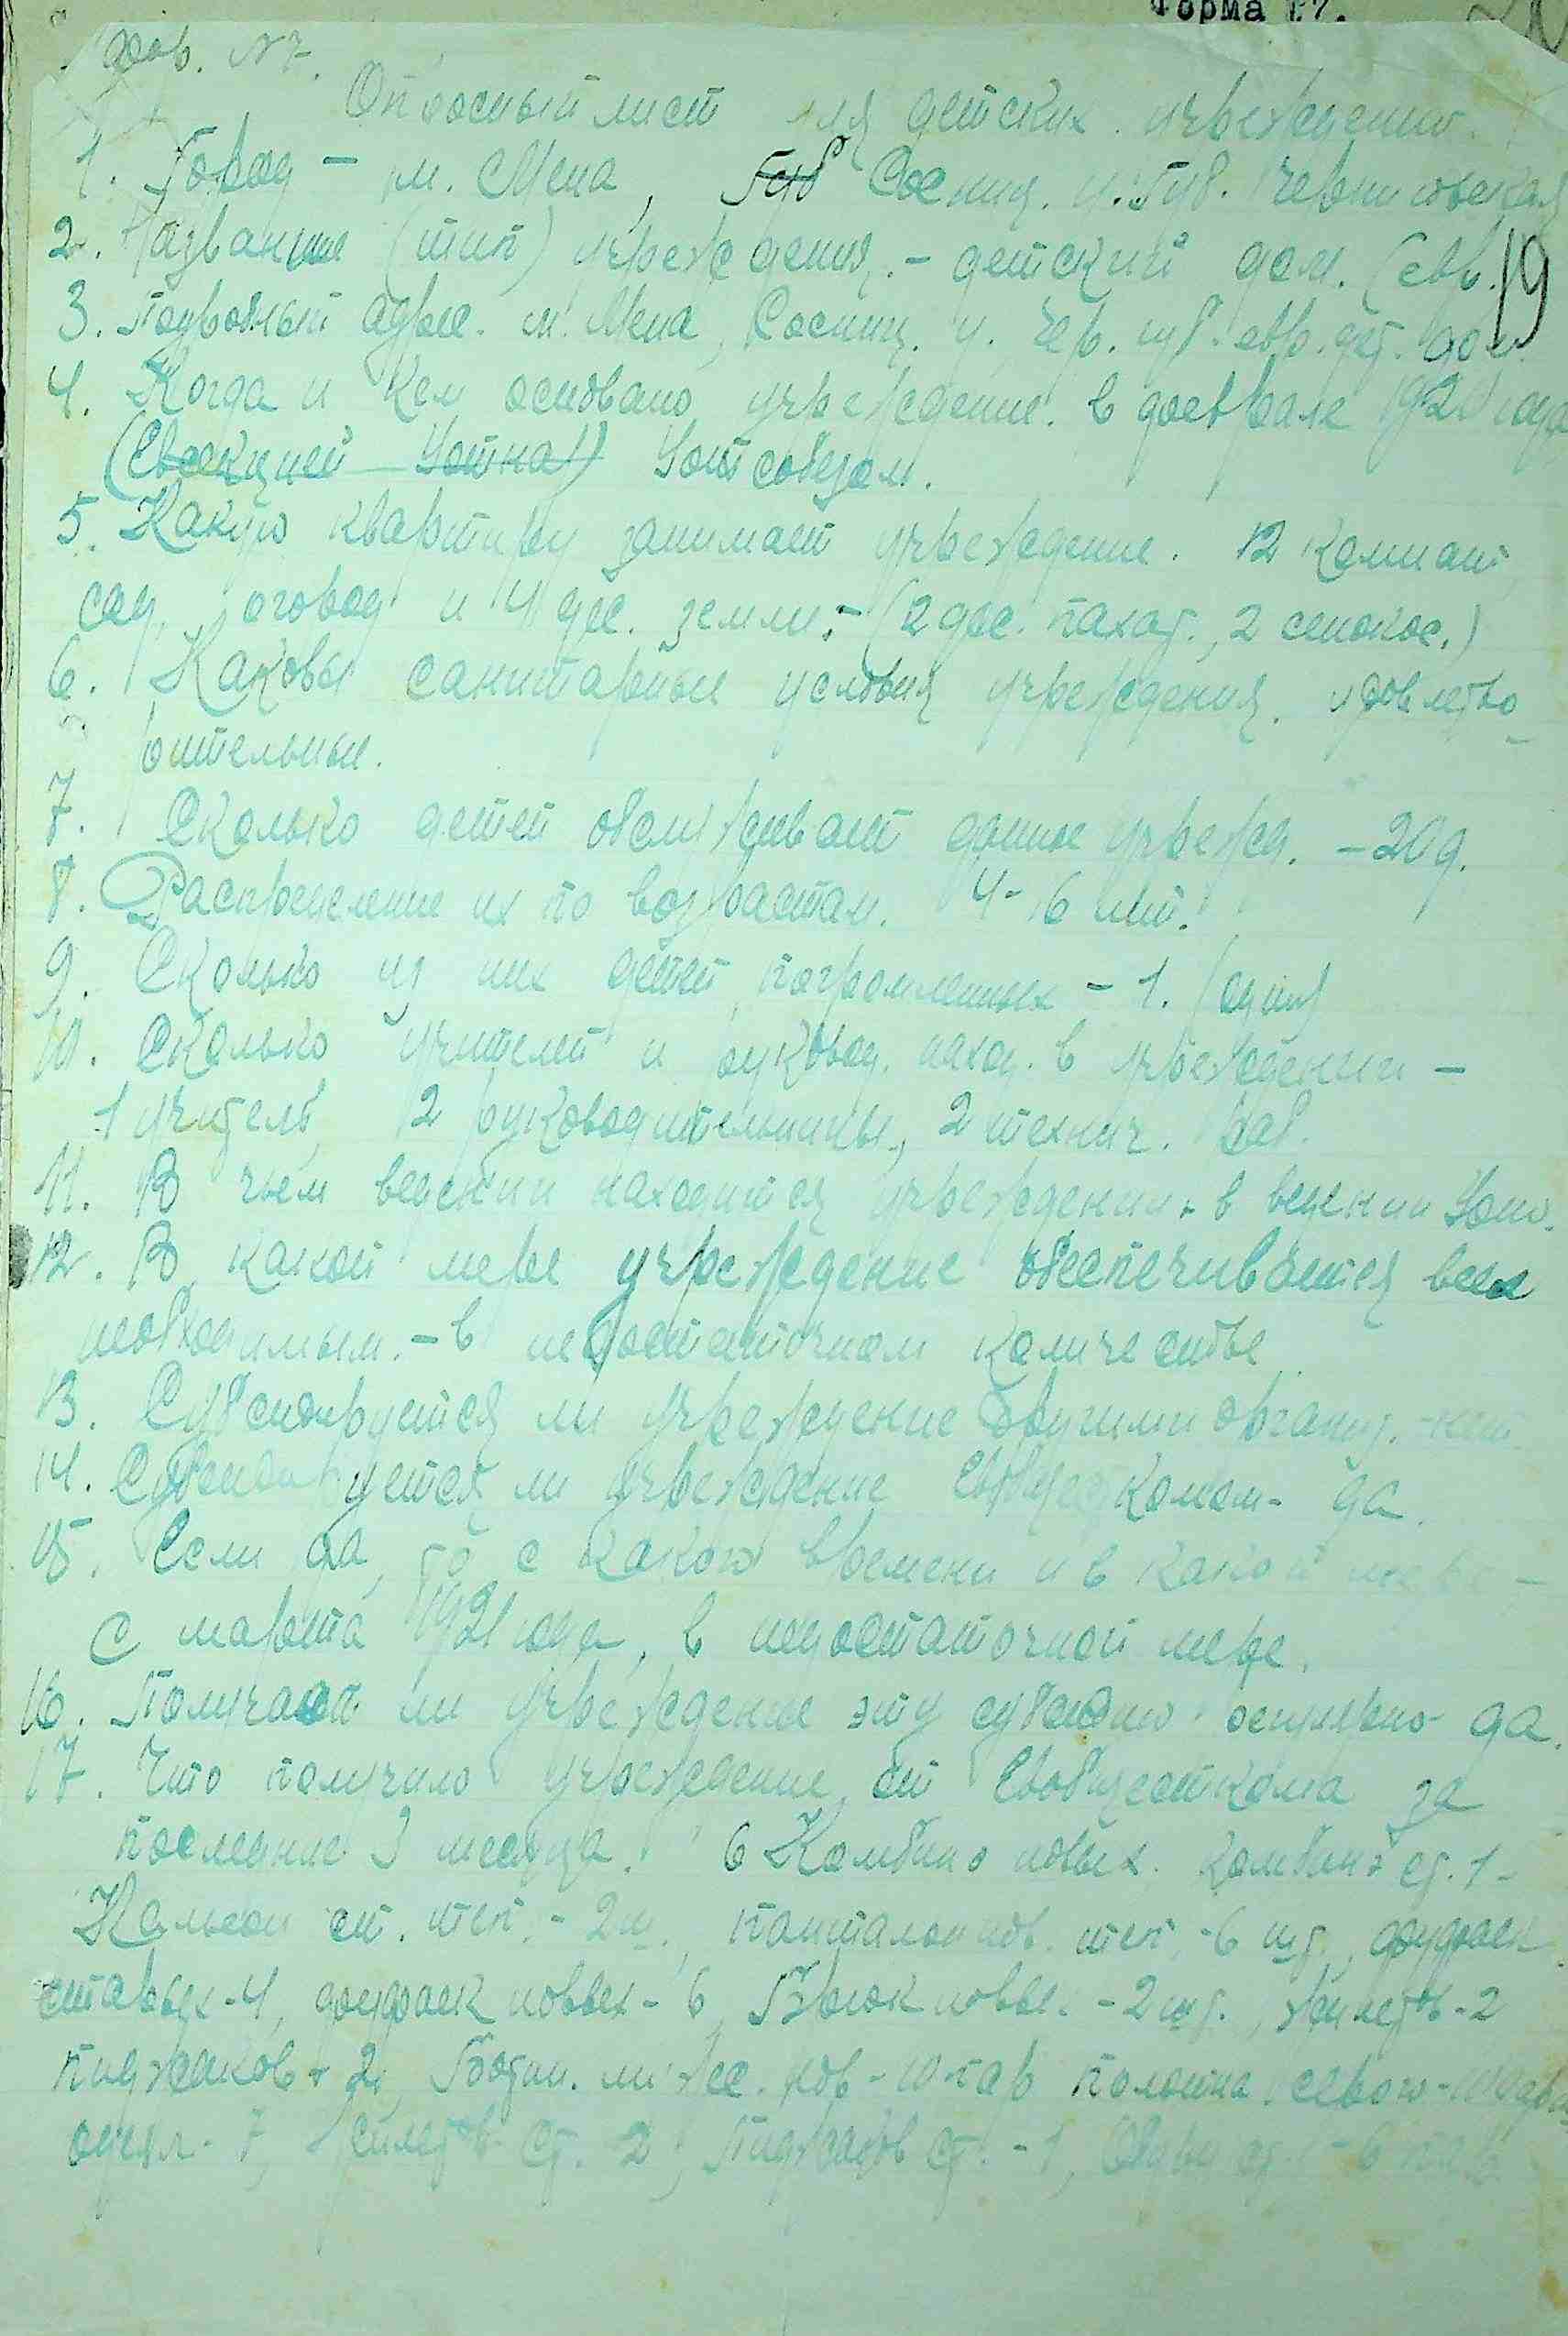 Форма №7.
форм. №7.
Опросный лист для детских учреждений.
1. Город – м. Мена, Губ Сосниц. у. Губ. Черниговская
2. Название (тип) учреждения. – детский дом. (евр.)
19
3. Подробный адрес. м. Мена, Сосниц. у. Чер. губ. евр. дет. дом.
4. Когда и кем основано учреждение. в феврале 1920 года
(Евсекцией Уотнаг) Уотсобезом.
5. Какую квартиру занимает учреждение. 12 комнат,
сад, огород и 4 дес. земли. – (2 дес. пахот., 2 сенокос.)
6. Каковы санитарные условия учреждения. удовлетво-
рительные.
7. Сколько детей обслуживает данное учрежд. – 20 д.
8. Распределение их по возрастам. 4-16 лет.
9. Сколько из них детей погромленных – 1. (один)
10. Сколько учителей и руковод. наход. в учреждении –
1 учитель, 2 руководительницы, 2 технич. раб.
11. В чьем ведении находится учреждении. в ведении Уот.
12. В какой мере учреждение обеспечивается всем
необходимым. – в недостаточном количестве
13. Субсидируется ли учреждение другими организ. – нет.
14. Субсидируется ли учреждение Евобщесткомом – да.
15. Если да, то с какого времени и в какой мере –
с марта 1921 года, в недостаточной мере.
16. Получает ли учреждение эту субсидию регулярно да.
17. Что получило учреждение от Евобщесткома за
последние 3 месяца. 6 Комбине новых. комбинэ ст. 1 –
Кальсон ст. теп. – 2 ш., панталон нов. теп. – 6 шт., фуфаек
старых – 4, фуфаек новых – 6, Брюк новых – 2 шт., жилетов – 2
пиджаков – 2, Ботин. муж. нов – 10 пар полотна серого –
одеял – 7, жилетов ст. 2, Пиджаков ст. – 1, Обуви ст. – 6 пар.